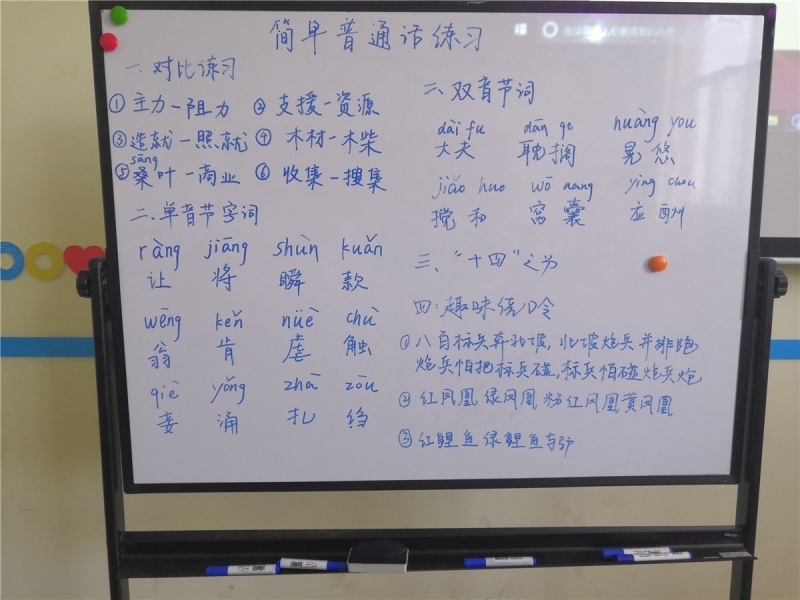 简单普通话练习
一、对比练习
①主力—阻力 ②支援—资源
③造就—照就 ④木材—木柴
sāng
⑤桑叶—商业 ⑥收集—搜集
二、单音节字词
ràng jiāng shùn kuǎn
让 将 瞬 款
wēng kěn nüè chù
翁 肯 虐 触
qiè yǒng zhā zōu
妾 涌 扎 绉
二、双音节词
dài fu dān ge huàng you
大夫 耽搁 晃悠
jiǎo huo wō nang yìng chou
搅和 窝囊 应酬
三、“十四”之为
四：趣味绕口令
①八百标兵奔北坡，北坡炮兵并排跑
炮兵怕把标兵碰，标兵怕碰炮兵炮
②红凤凰绿凤凰粉红凤凰黄凤凰
③红鲤鱼绿鲤鱼与驴